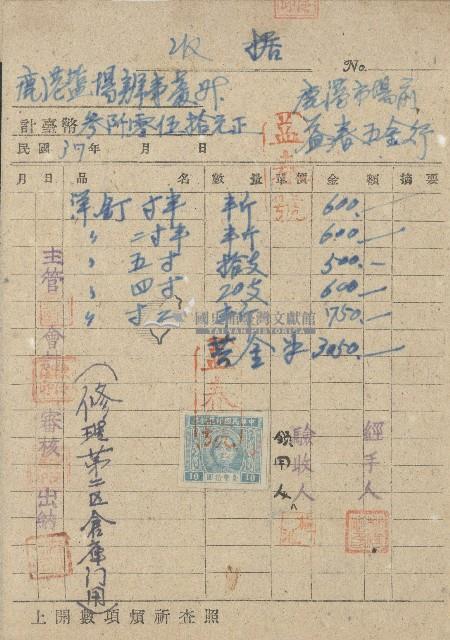 收据
No.
鹿港鹽場辦事處 鹿港市場前
計臺幣 參阡零伍拾元正 益春五金行
民國37年 月 日
月 日 品 名 數 量 單價 金 額 摘要
洋釘 寸半 半斤 600.—
〃 二寸半 半斤 600.—
〃 五寸 拾支 500.—
〃 四寸 20支 600.—
〃 寸二 750.—
3050.—
國史館臺灣文獻館
TAIWAN HISTORICA
益春號
主管 會 審核 出納
(修理第二区倉庫門用)
益春
10 10
領用人
驗收人
經手人
上開數項煩祈查照